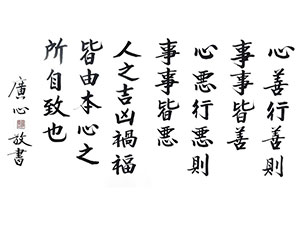 心善行善則
事事皆善
心悪行悪則
事事皆悪
人之吉凶禍福
皆由本心之
所自致也
廣心敬書